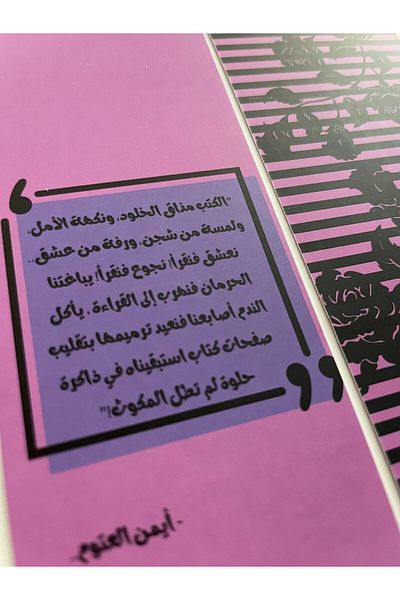 "الكتب مذاق الخلود، ونكهة الأمل،
ولمسة من شجن، ورفة من عشق..
نعشق فنقرأ! نجوع فنقرأ! يباغتنا
الحرمان فنهرب إلى القراءة، يأكل
الندم أصابعنا فنعيد ترميمها بتقليب
صفحات كتاب استبقيناه في ذاكرة
حلوة لم تطل المكوث!"
- أيمن العتوم..